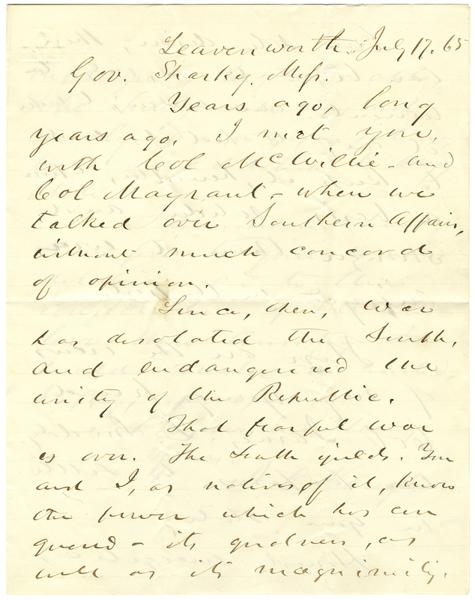 Leavenworth July 17. 65
Gov. Sharkey. Miss.
Years ago, long
years ago, I met you,
with Col McWillie - and
Col Magrant - when we
talked over Southern Affairs,
without much concord
of opinion.
Since, then, war
has desolated the South,
and endangered the
unity of the Republic.
That fearful war
is over. The South yields. You
and I, as natives of it, know
the power which has con
quered - its goodness, as
well as its magnimity.